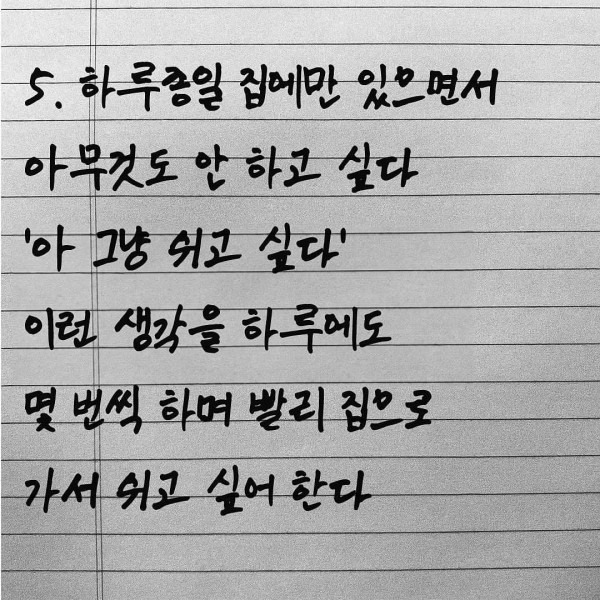 5. 하루종일 집에만 있으면서
아무것도 안 하고 싶다
'아 그냥 쉬고 싶다'
이런 생각을 하루에도
몇 번씩 하며 빨리 집으로
가서 쉬고 싶어 한다